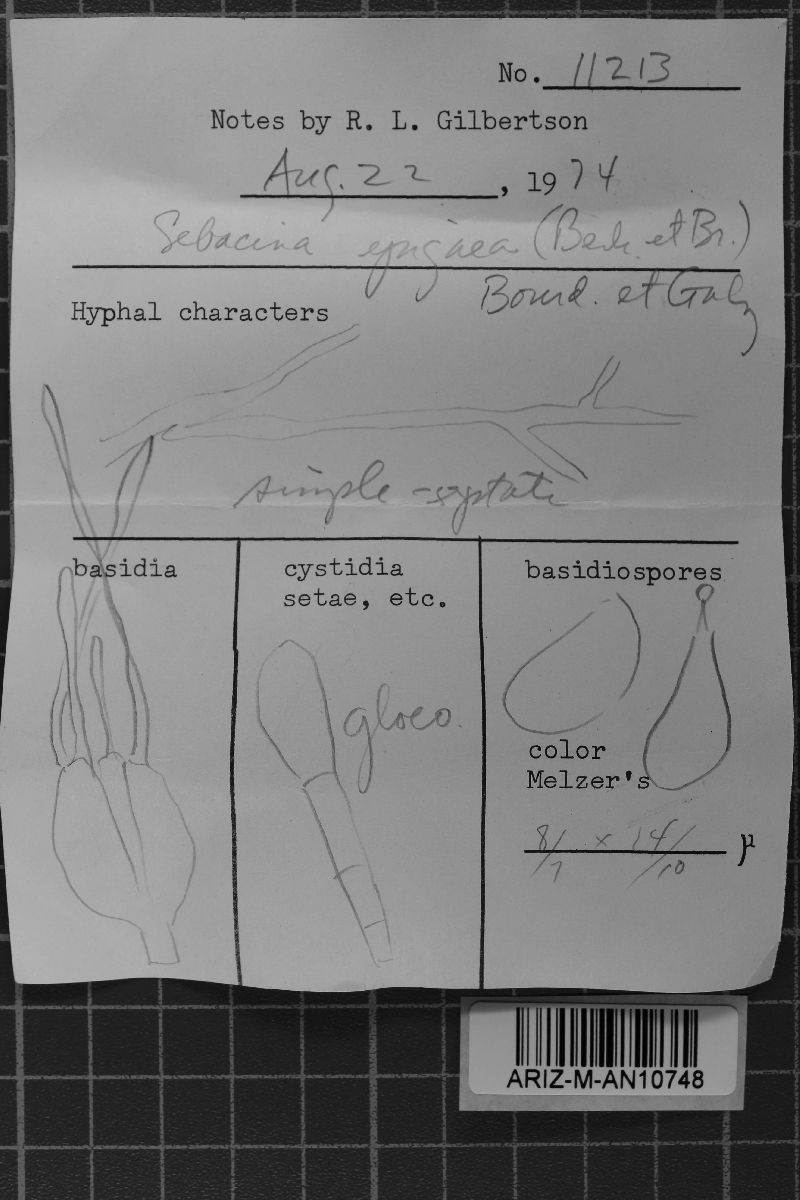 No. 11213
Notes by R. L. Gilbertson
Aug. 22, 1974
Sebacina epigaea (Berk. et Br.)
Bourd. et Galz
Hyphal characters
simple-septate
basidia
cystidia
setae, etc.
gloeo.
basidiospores
color
Melzer's
8/7 x 14/10 µ
ARIZ-M-AN10748